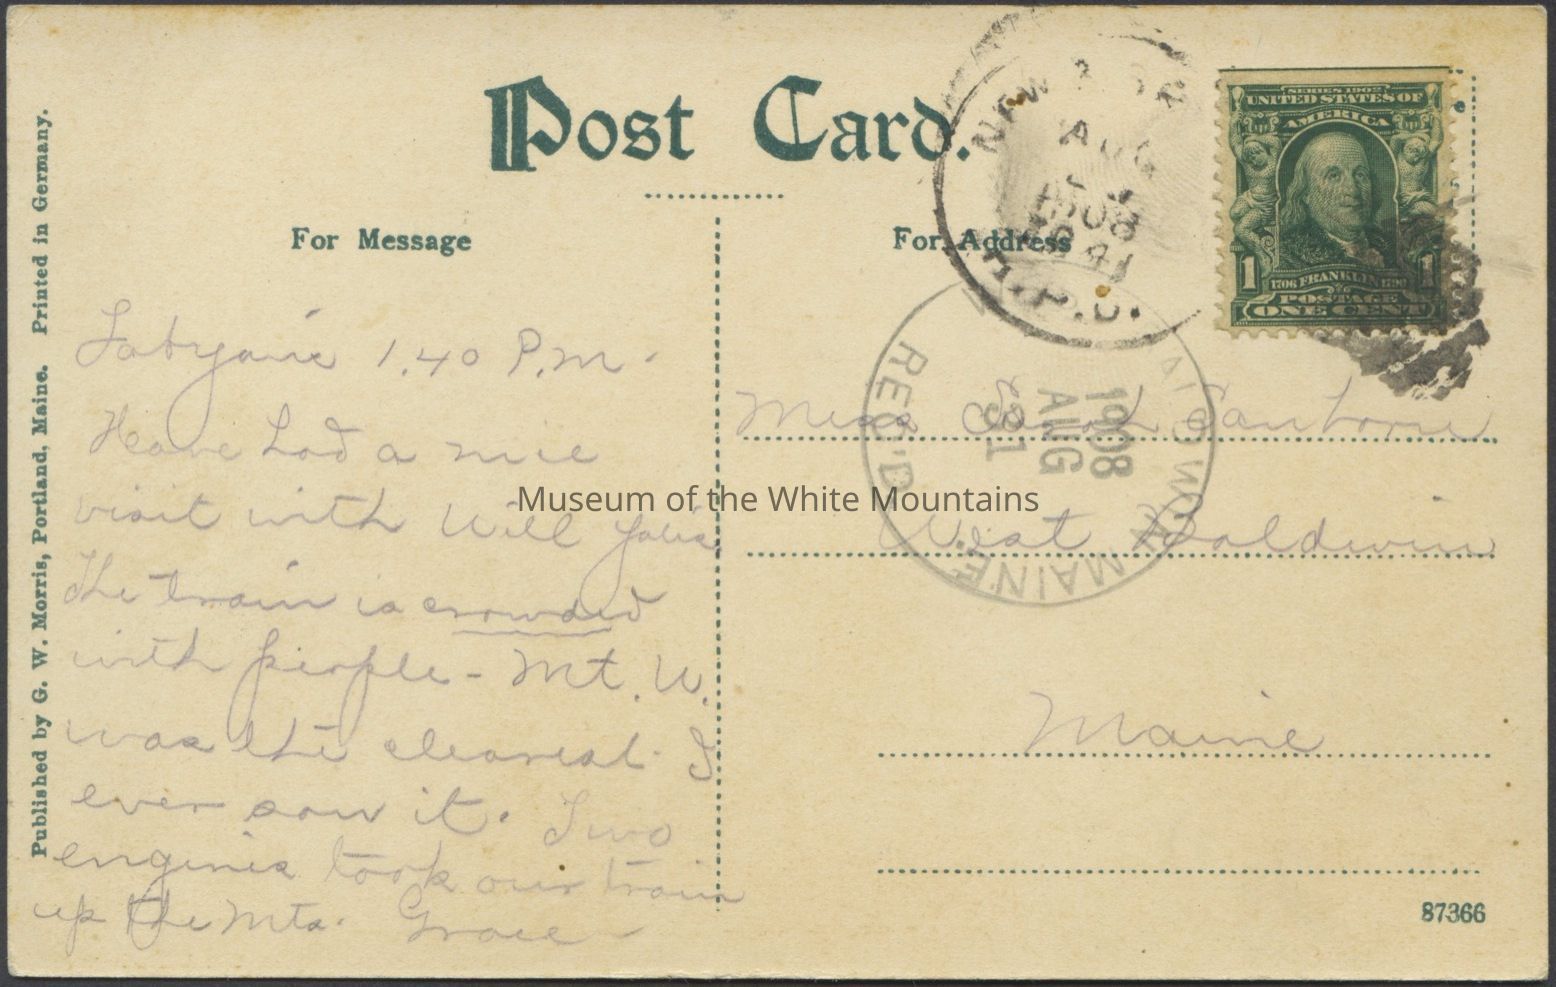 Post Card.
For Message
For Address
Published by G. W. Morris, Portland, Maine. Printed in Germany.
SERIES 1902
UNITED STATES OF
AMERICA
1 1706 FRANKLIN 1790 1
POSTAGE
ONE CENT
NEW
AUG
1908
R.P.O.
REC'D.
1908
AUG
31
MAINE
Fabyans 1.40 P.M.
Have had a nice
visit with Will
The train is crowded
with people - Mt. W.
was the clearest I
ever saw it. Two
engines took our train
up the Mts. Grace -
Miss Sarah Sanborn
West Baldwin
Maine
87366
Museum of the White Mountains